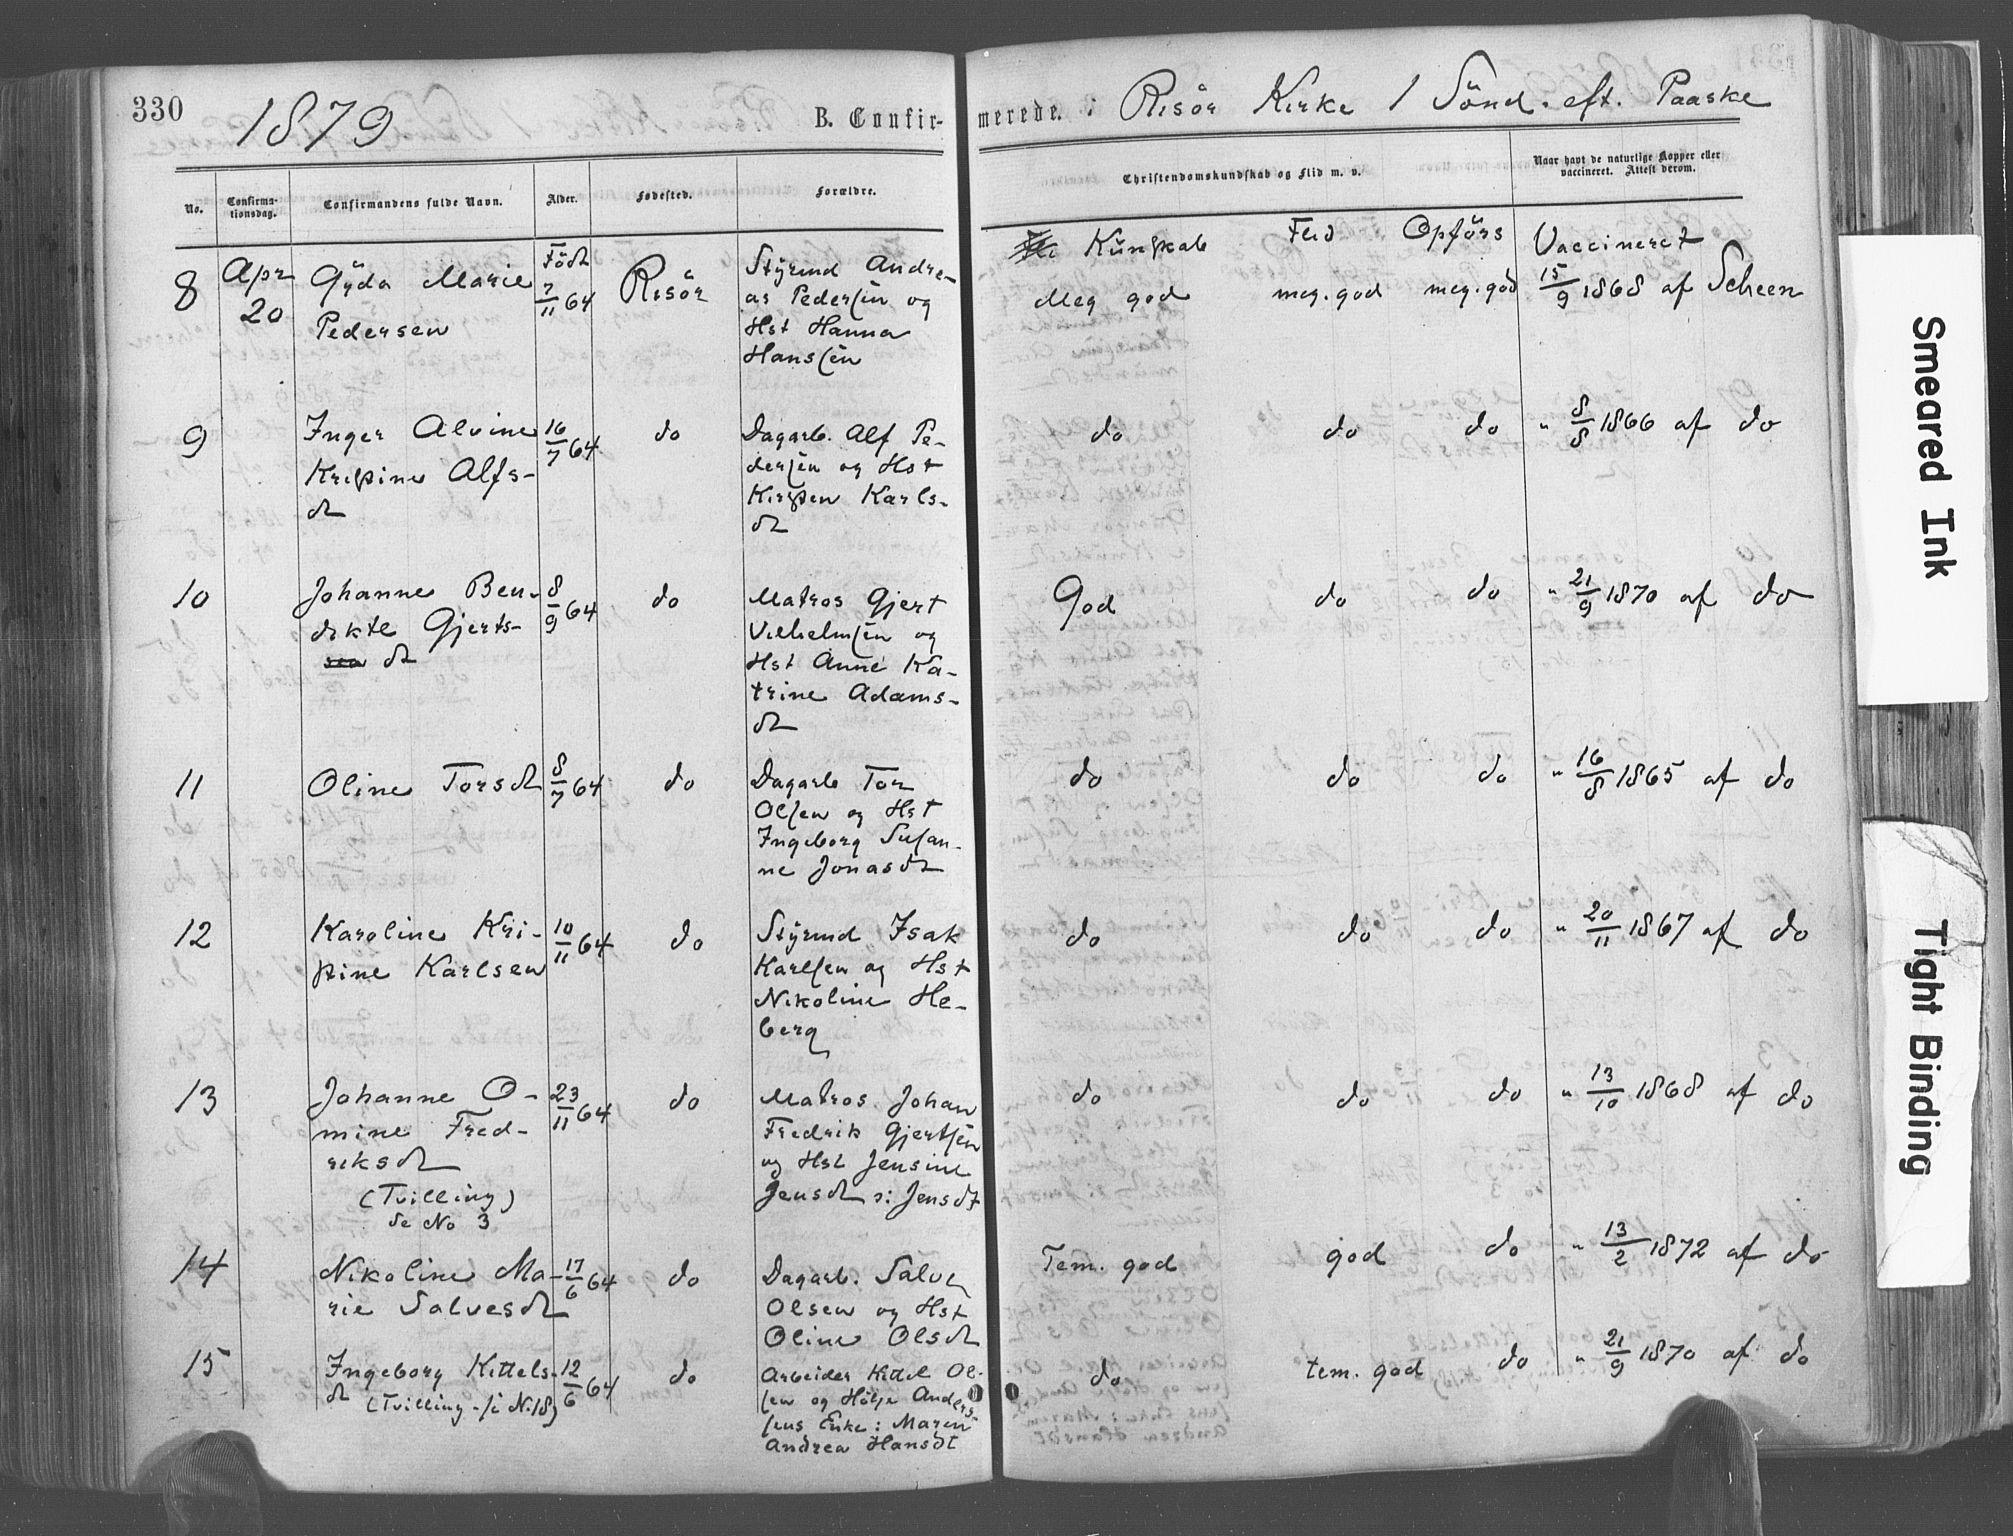 330
1879
B. Confir-
merede. i Risör Kirke 1 Sönd. eft. Paaske
No.
Confirma-
tionsdag.
Confirmandens fulde Navn.
Alder.
Fødested.
Forældre.
Christendomskundskab og Flid m. v.
Naar havt de naturlige Kopper eller
vaccineret. Attest derom.
Kundskab Flid Opförs Vaccineret
8
Apr
20
Gÿda Marie
Pedersen
Födt
7/11 64
Risör
Stÿrmd Andre-
as Pedersen og
Hst Hanna
Hansen
Meg god
meg. god
meg. god
15/9 1868 af Scheen
9
Inger Alvine
Kristine Alfs-
dt
16/7 64
do
Dagarb. Alf Pe-
dersen og Hst
Kirsten Karls-
dt
do
do
do
" 8/8 1866 af do
10
Johanne Ben-
dikte Gjerts-
sen dt
8/9 64
do
Matros Gjert
Vilhelmsen og
Hst Anne Ka-
trine Adams-
dt
God
do
do
" 21/9 1870 af do
11
Oline Torsdt
8/7 64
do
Dagarb Tor
Olsen og Hst
Ingeborg Susan-
ne Jonasdt
do
do
do
" 16/8 1865 af do
12
Karoline Kri-
stine Karlsen
10/11 64
do
Stÿrmd Isak
Karlsen og Hst
Nikoline He-
berg
do
do
do
" 20/11 1867 af do
13
Johanne O-
mine Fred-
riksdt
(Tvilling)
se No 3
23/11 64
do
Matros Johan
Fredrik Gjertsen
og Hst Jensine
Jensdt : Jensdt
do
do
do
" 13/10 1868 af do
14
Nikoline Ma-
rie Salvesdt
17/6 64
do
Dagarb. Salve
Olsen og Hst
Oline Olsdt
Tem. god
god
do
" 13/2 1872 af do
15
Ingeborg Kittels-
dt (Tvilling N. 18)
12/6 64
do
Arbeider Kittel Ol-
sen og Anders-
sens Enke : Maren
Andrea Hansdt
do
tem. god
do
" 21/9 1870 af do
Smeared Ink
Tight Binding